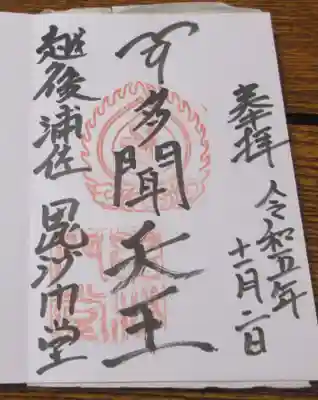 奉拝 令和五年
十一月二日
多聞天王
越後浦佐 毘沙門堂